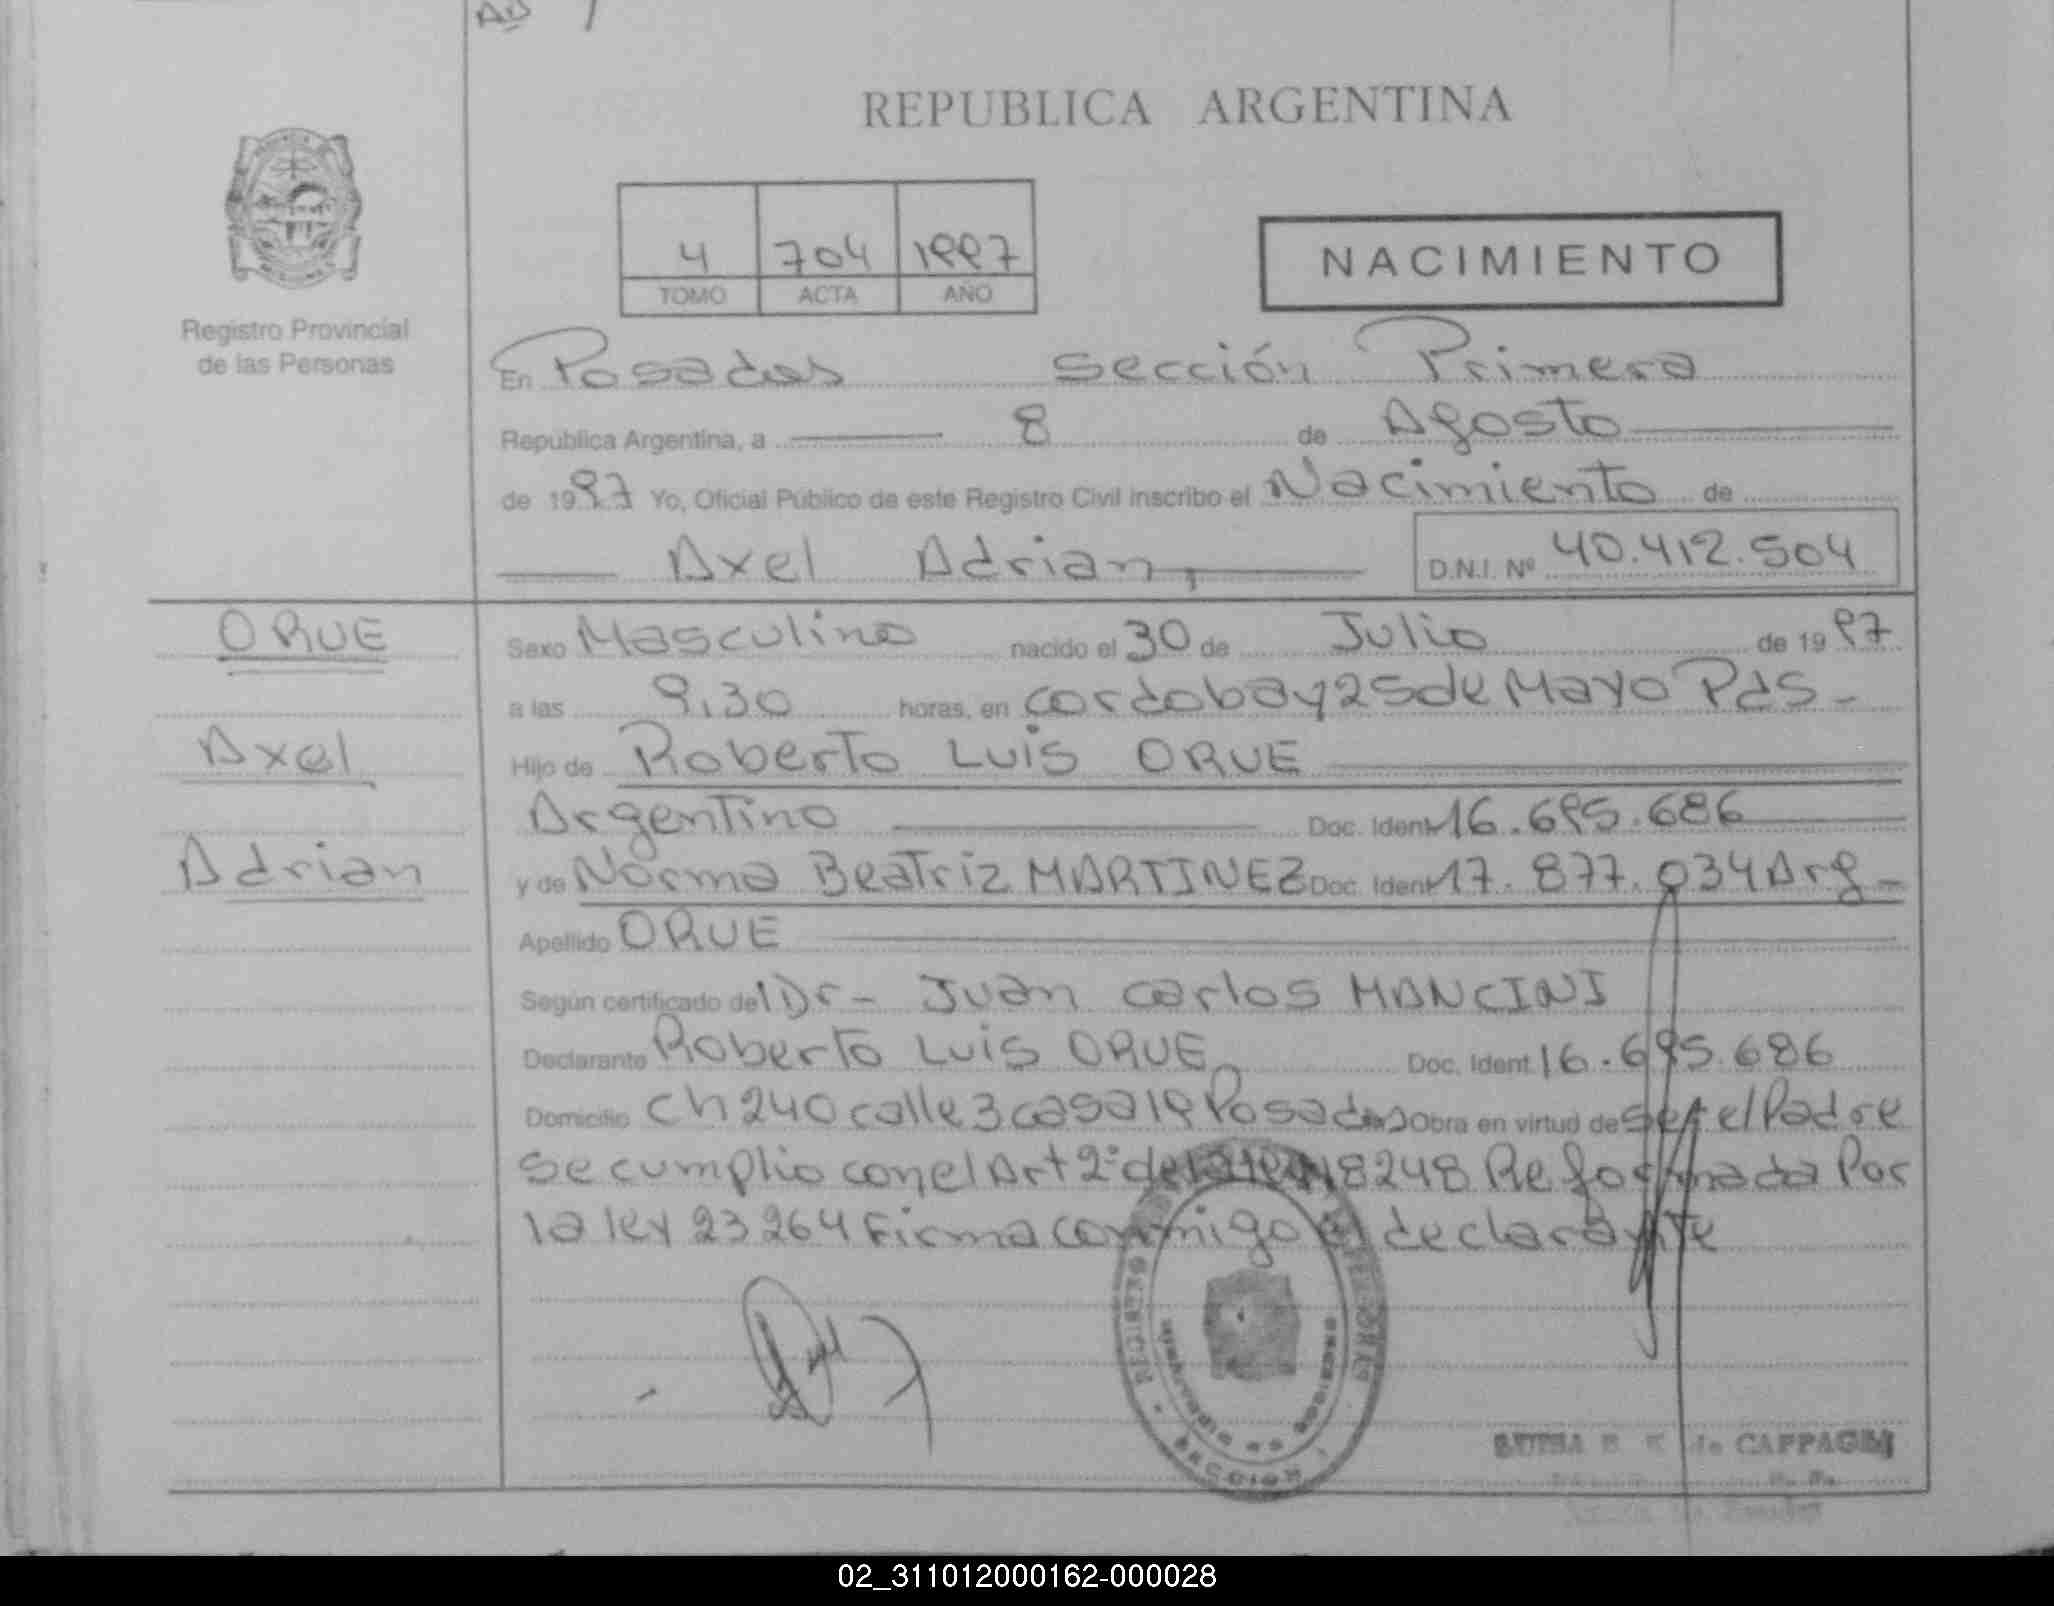 AD
REPUBLICA ARGENTINA
4 704 1997
TOMO ACTA AÑO
NACIMIENTO
Registro Provincial
de las Personas
En Posadas Sección Primera
Republica Argentina, a 8 de Agosto
de 1997 Yo, Oficial Público de este Registro Civil inscribo el Nacimiento de
Axel Adrian,
D.N.I. Nº 40.412.504
ORUE
Axel
Adrian
Sexo Masculino nacido el 30 de Julio de 1997
a las 9,30 horas, en Cordoba y 25 de Mayo Pdas-
Hijo de Roberto Luis ORUE
Argentino Doc. Ident 16.695.686
y de Norma Beatriz MARTINEZ Doc. Ident 17.877.034 Arg-
Apellido ORUE
Según certificado del Dr- Juan Carlos MANCINI
Declarante Roberto Luis ORUE Doc. Ident 16.695.686
Domicilio Ch 240 calle 3 casa 19 Posadas Obra en virtud de ser el Padre
se cumplio con el Art 2º de la ley 18248 Reformada Por
la ley 23264 Firma conmigo el declarante
REGISTRO
SECCION
CAPPAGLI
02_311012000162-000028